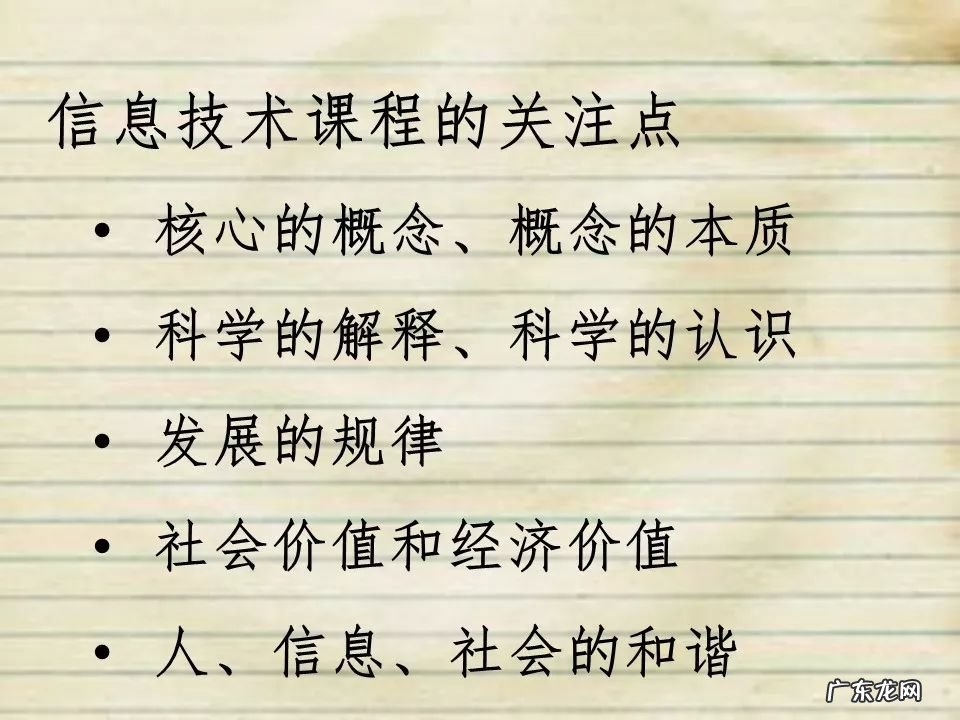 信息技术课程的关注点
• 核心的概念、概念的本质
• 科学的解释、科学的认识
• 发展的规律
• 社会价值和经济价值
• 人、信息、社会的和谐
广东龙网